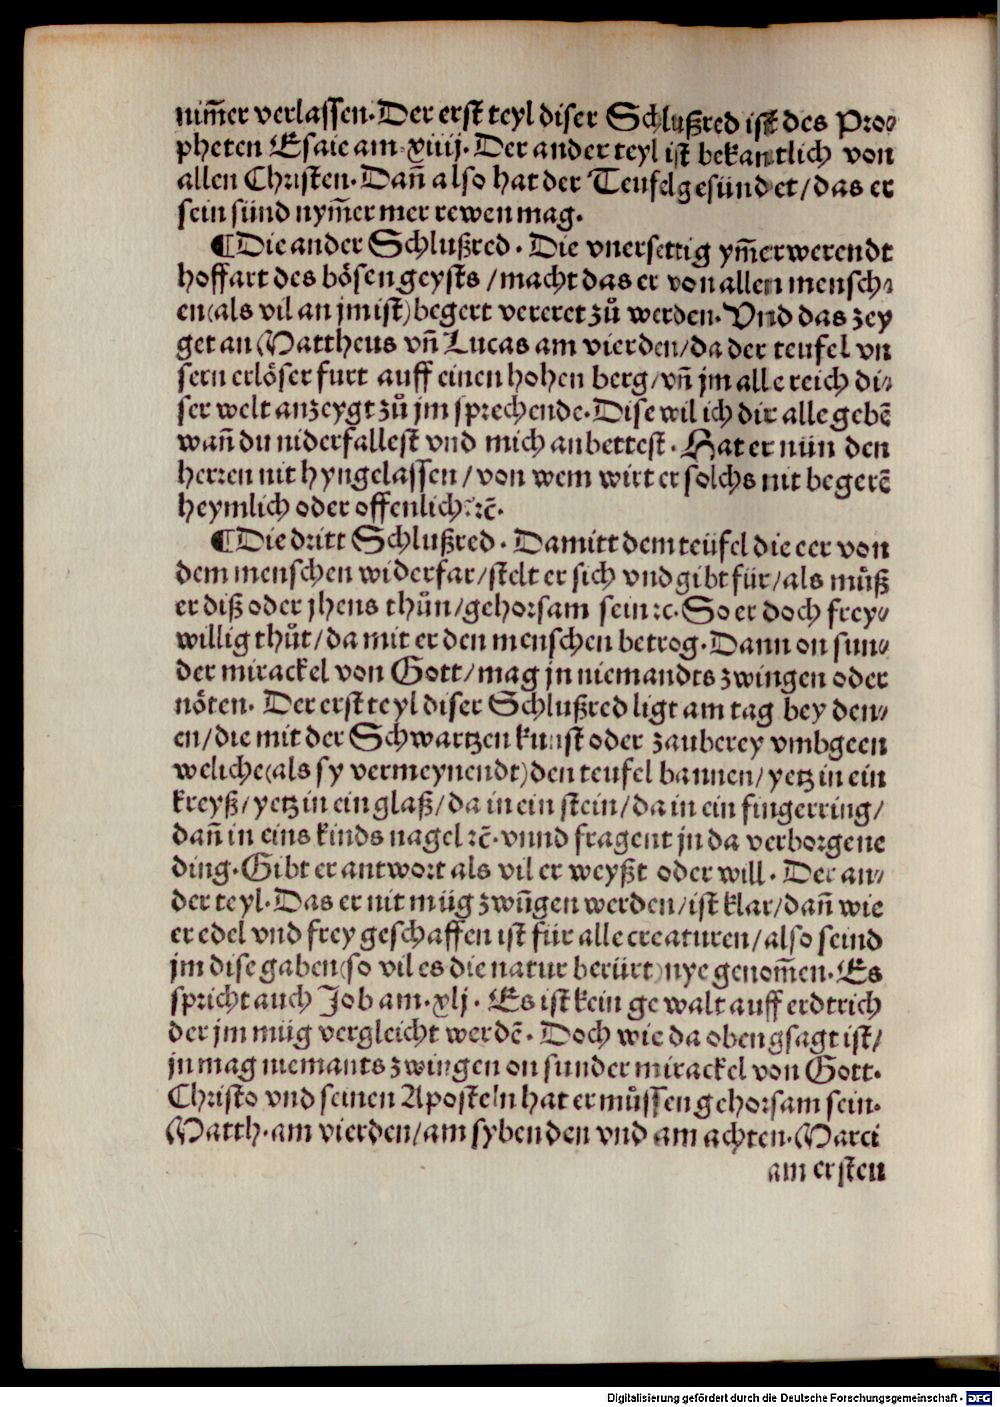 nim̄er verlassen. Der erst teyl diser Schlußred ist des Pro-
pheten Esaie am .xiiij. Der ander teyl ist bekantlich von
allen Christen. Dañ also hat der Teufel gesündet/das er
sein sünd nym̄er mer rewen mag.
¶Die ander Schlußred. Die vnersettig ym̄erwerendt
hoffart des bösen geysts/macht das er von allen mensch-
en(als vil an jm ist)begert vereret zů werden. Vnd das zey
get an Mattheus vñ Lucas am vierden/da der teufel vn
sern erlöser furt auff einen hohen berg/vñ jm alle reich di-
ser welt anzeygt zů jm sprechende. Dise wil ich dir alle gebē
wañ du niderfallest vnd mich anbettest. Hat er nün den
herren nit hyngelassen/von wem wirt er solchs nit begerē
heymlich oder offenlich.ꝛc̄.
¶Die dritt Schlußred. Damitt dem teüfel die eer von
dem menschen widerfar/stelt er sich vnd gibt für/als můß
er diß oder jhens thůn/gehorsam sein ꝛc. So er doch frey-
willig thůt/da mit er den menschen betrog. Dann on sun-
der mirackel von Gott/mag jn niemandts zwingen oder
nöten. Der erst teyl diser Schlußred ligt am tag bey den-
en/die mit der Schwartzen kunst oder zauberey vmbgeen
weliche(als sy vermeynendt)den teufel bannen/yetz in ein
kreyß/yetz in ein glaß/da in ein stein/da in ein fingerring/
dañ in eins kinds nagel ꝛc̄. vnnd fragent jn da verborgene
ding. Gibt er antwort als vil er weyßt oder will. Der an-
der teyl. Das er nit müg zwūgen werden/ist klar/dañ wie
er edel vnd frey geschaffen ist für alle creaturen/also seind
jm dise gaben(so vil es die natur berürt)nye genom̄en. Es
spricht auch Job am .xlj. Es ist kein gewalt auff erdtrich
der jm müg vergleicht werdē. Doch wie da oben gsagt ist/
jn mag niemants zwingen on sunder mirackel von Gott.
Christo vnd seinen Aposteln hat er müssen gehorsam sein.
Matth. am vierden/am sybenden vnd am achten. Marci
am ersten
Digitalisierung gefördert durch die Deutsche Forschungsgemeinschaft - DFG